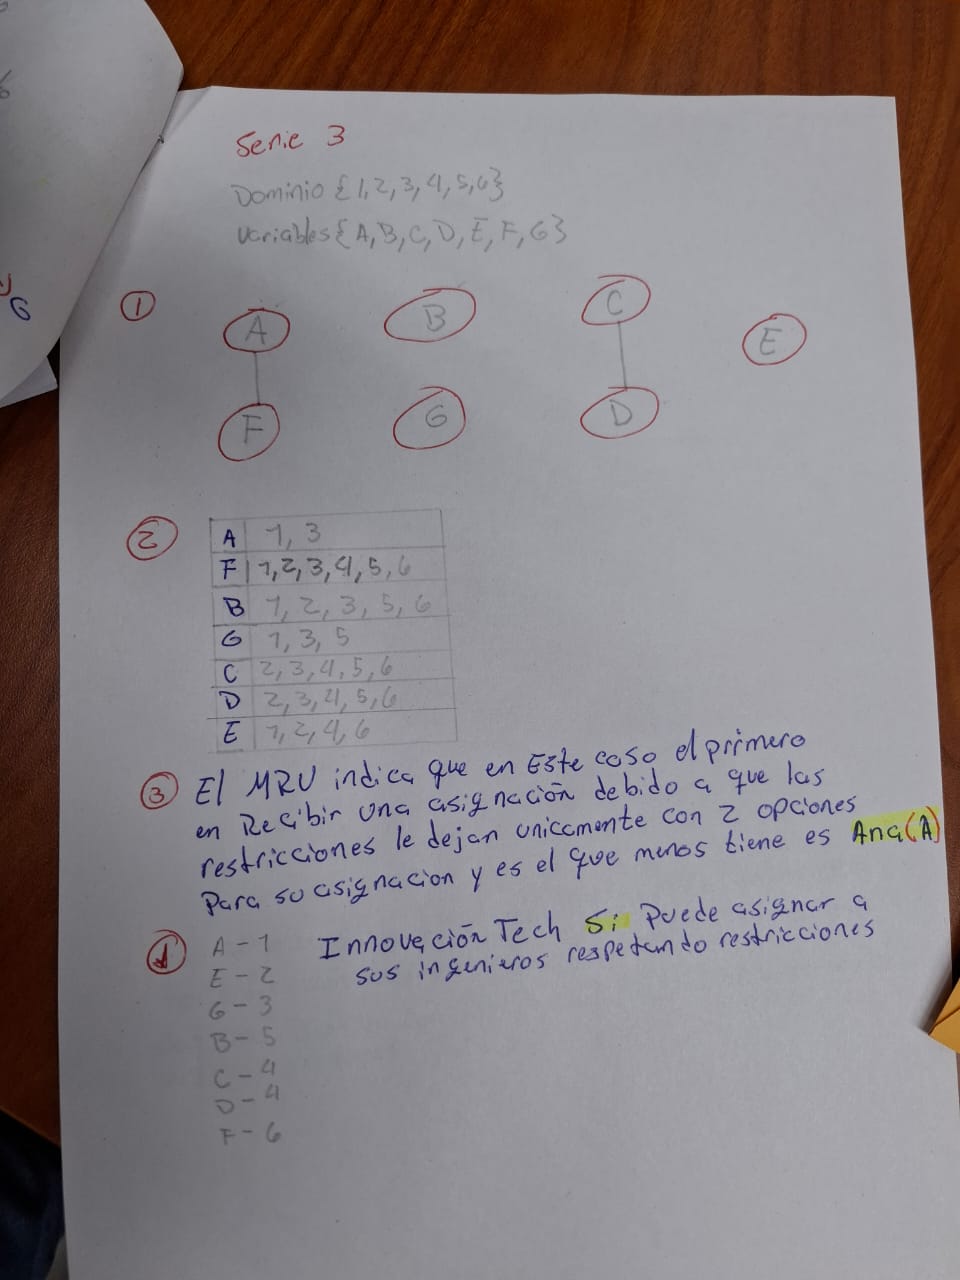 6
6
Serie 3
Dominio {1,2,3,4,5,6}
Variables {A,B,C,D,E,F,G}
1
A B C E
F G D
2
A 1, 3
F 1,2,3,4,5,6
B 1, 2, 3, 5, 6
G 1, 3, 5
C 2,3,4,5,6
D 2,3,4,5,6
E 1,2,4,6
3 El MRV indica que en Este caso el primero
en Recibir una asignación debido a que las
restricciones le dejan unicamente con 2 opciones
Para su asignacion y es el que menos tiene es Ana(A)
A - 1 Innovación Tech Si Puede asignar a
E - 2 sus ingenieros respetando restricciones
G - 3
B - 5
C - 4
D - 4
F - 6